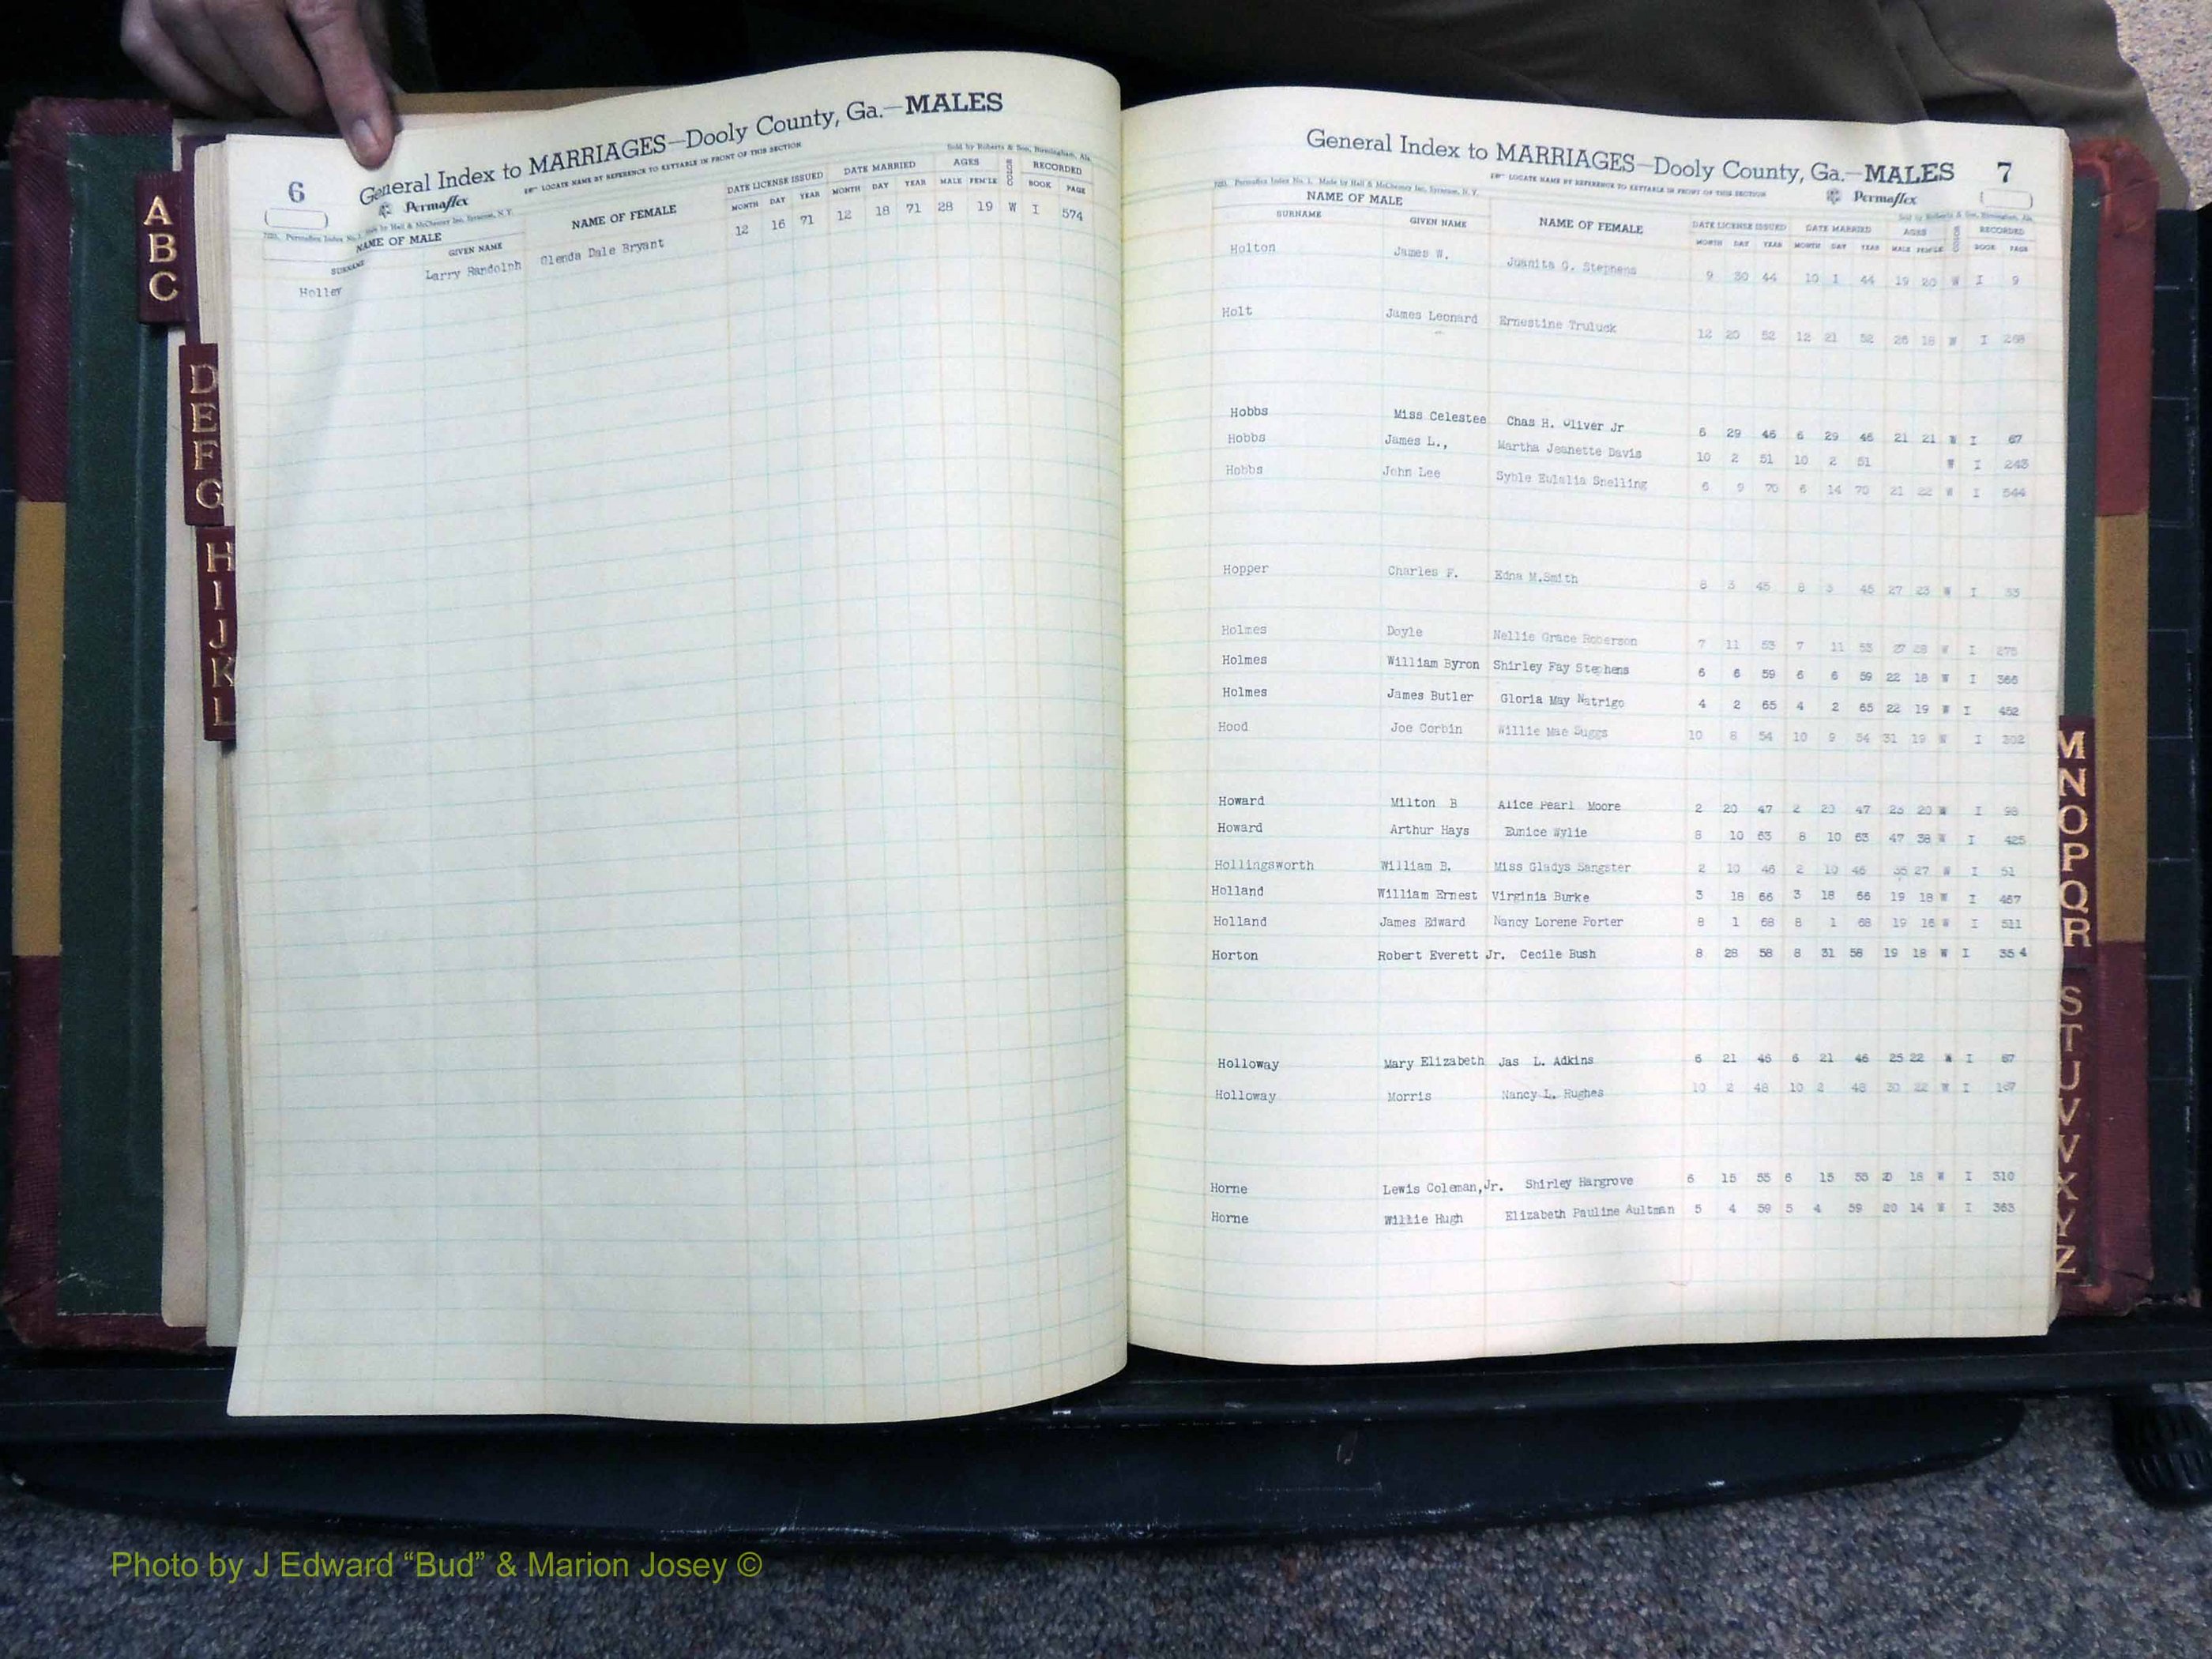 A
B
C
D
E
F
G
H
I
J
K
L
6
General Index to MARRIAGES—Dooly County, Ga.—MALES
LOCATE NAME BY REFERENCE TO KEYTABLE IN FRONT OF THIS SECTION
Permaflex
Sold by Roberts & Son, Birmingham, Ala.
NAME OF MALE NAME OF FEMALE DATE LICENSE ISSUED DATE MARRIED AGES COLOR RECORDED
SURNAME GIVEN NAME MONTH DAY YEAR MONTH DAY YEAR MALE FEM'LE BOOK PAGE
Holley Larry Randolph Glenda Dale Bryant 12 16 71 12 18 71 28 19 W I 574
General Index to MARRIAGES—Dooly County, Ga.—MALES 7
LOCATE NAME BY REFERENCE TO KEYTABLE IN FRONT OF THIS SECTION
Permaflex
7221. Permaflex Index No. 1. Made by Hall & McChesney Inc. Syracuse, N. Y.
Sold by Roberts & Son, Birmingham, Ala.
NAME OF MALE NAME OF FEMALE DATE LICENSE ISSUED DATE MARRIED AGES COLOR RECORDED
SURNAME GIVEN NAME MONTH DAY YEAR MONTH DAY YEAR MALE FEM'LE BOOK PAGE
Holton James W. Juanita G. Stephens 9 30 44 10 1 44 19 20 W I 9
Holt James Leonard Ernestine Truluck 12 20 52 12 21 52 26 18 W I 268
Hobbs Miss Celestee Chas H. Oliver Jr 6 29 46 6 29 46 21 21 W I 67
Hobbs James L., Martha Jeanette Davis 10 2 51 10 2 51 W I 243
Hobbs John Lee Syble Eulalia Snelling 6 9 70 6 14 70 21 22 W I 544
Hopper Charles F. Edna M.Smith 8 3 45 8 3 45 27 23 W I 33
Holmes Doyle Nellie Grace Roberson 7 11 53 7 11 53 27 28 W I 275
Holmes William Byron Shirley Fay Stephens 6 6 59 6 6 59 22 18 W I 366
Holmes James Butler Gloria May Natrigo 4 2 65 4 2 65 22 19 W I 452
Hood Joe Corbin Willie Mae Suggs 10 8 54 10 9 54 31 19 W I 302
Howard Milton B Alice Pearl Moore 2 20 47 2 20 47 25 20 W I 98
Howard Arthur Hays Eunice Wylie 8 10 63 8 10 63 47 38 W I 425
Hollingsworth William B. Miss Gladys Sangster 2 10 46 2 10 46 35 27 W I 51
Holland William Ernest Virginia Burke 3 18 66 3 18 66 19 18 W I 467
Holland James Edward Nancy Lorene Porter 8 1 68 8 1 68 19 18 W I 511
Horton Robert Everett Jr. Cecile Bush 8 28 58 8 31 58 19 18 W I 354
Holloway Mary Elizabeth Jas L. Adkins 6 21 46 6 21 46 25 22 W I 67
Holloway Morris Nancy L. Hughes 10 2 48 10 2 48 30 22 W I 167
Horne Lewis Coleman,Jr. Shirley Hargrove 6 15 55 6 15 55 20 18 W I 310
Horne Willie Hugh Elizabeth Pauline Aultman 5 4 59 5 4 59 20 14 W I 363
M
N
O
P
Q
R
S
T
U
V
W
X
Y
Z
Photo by J Edward “Bud” & Marion Josey ©